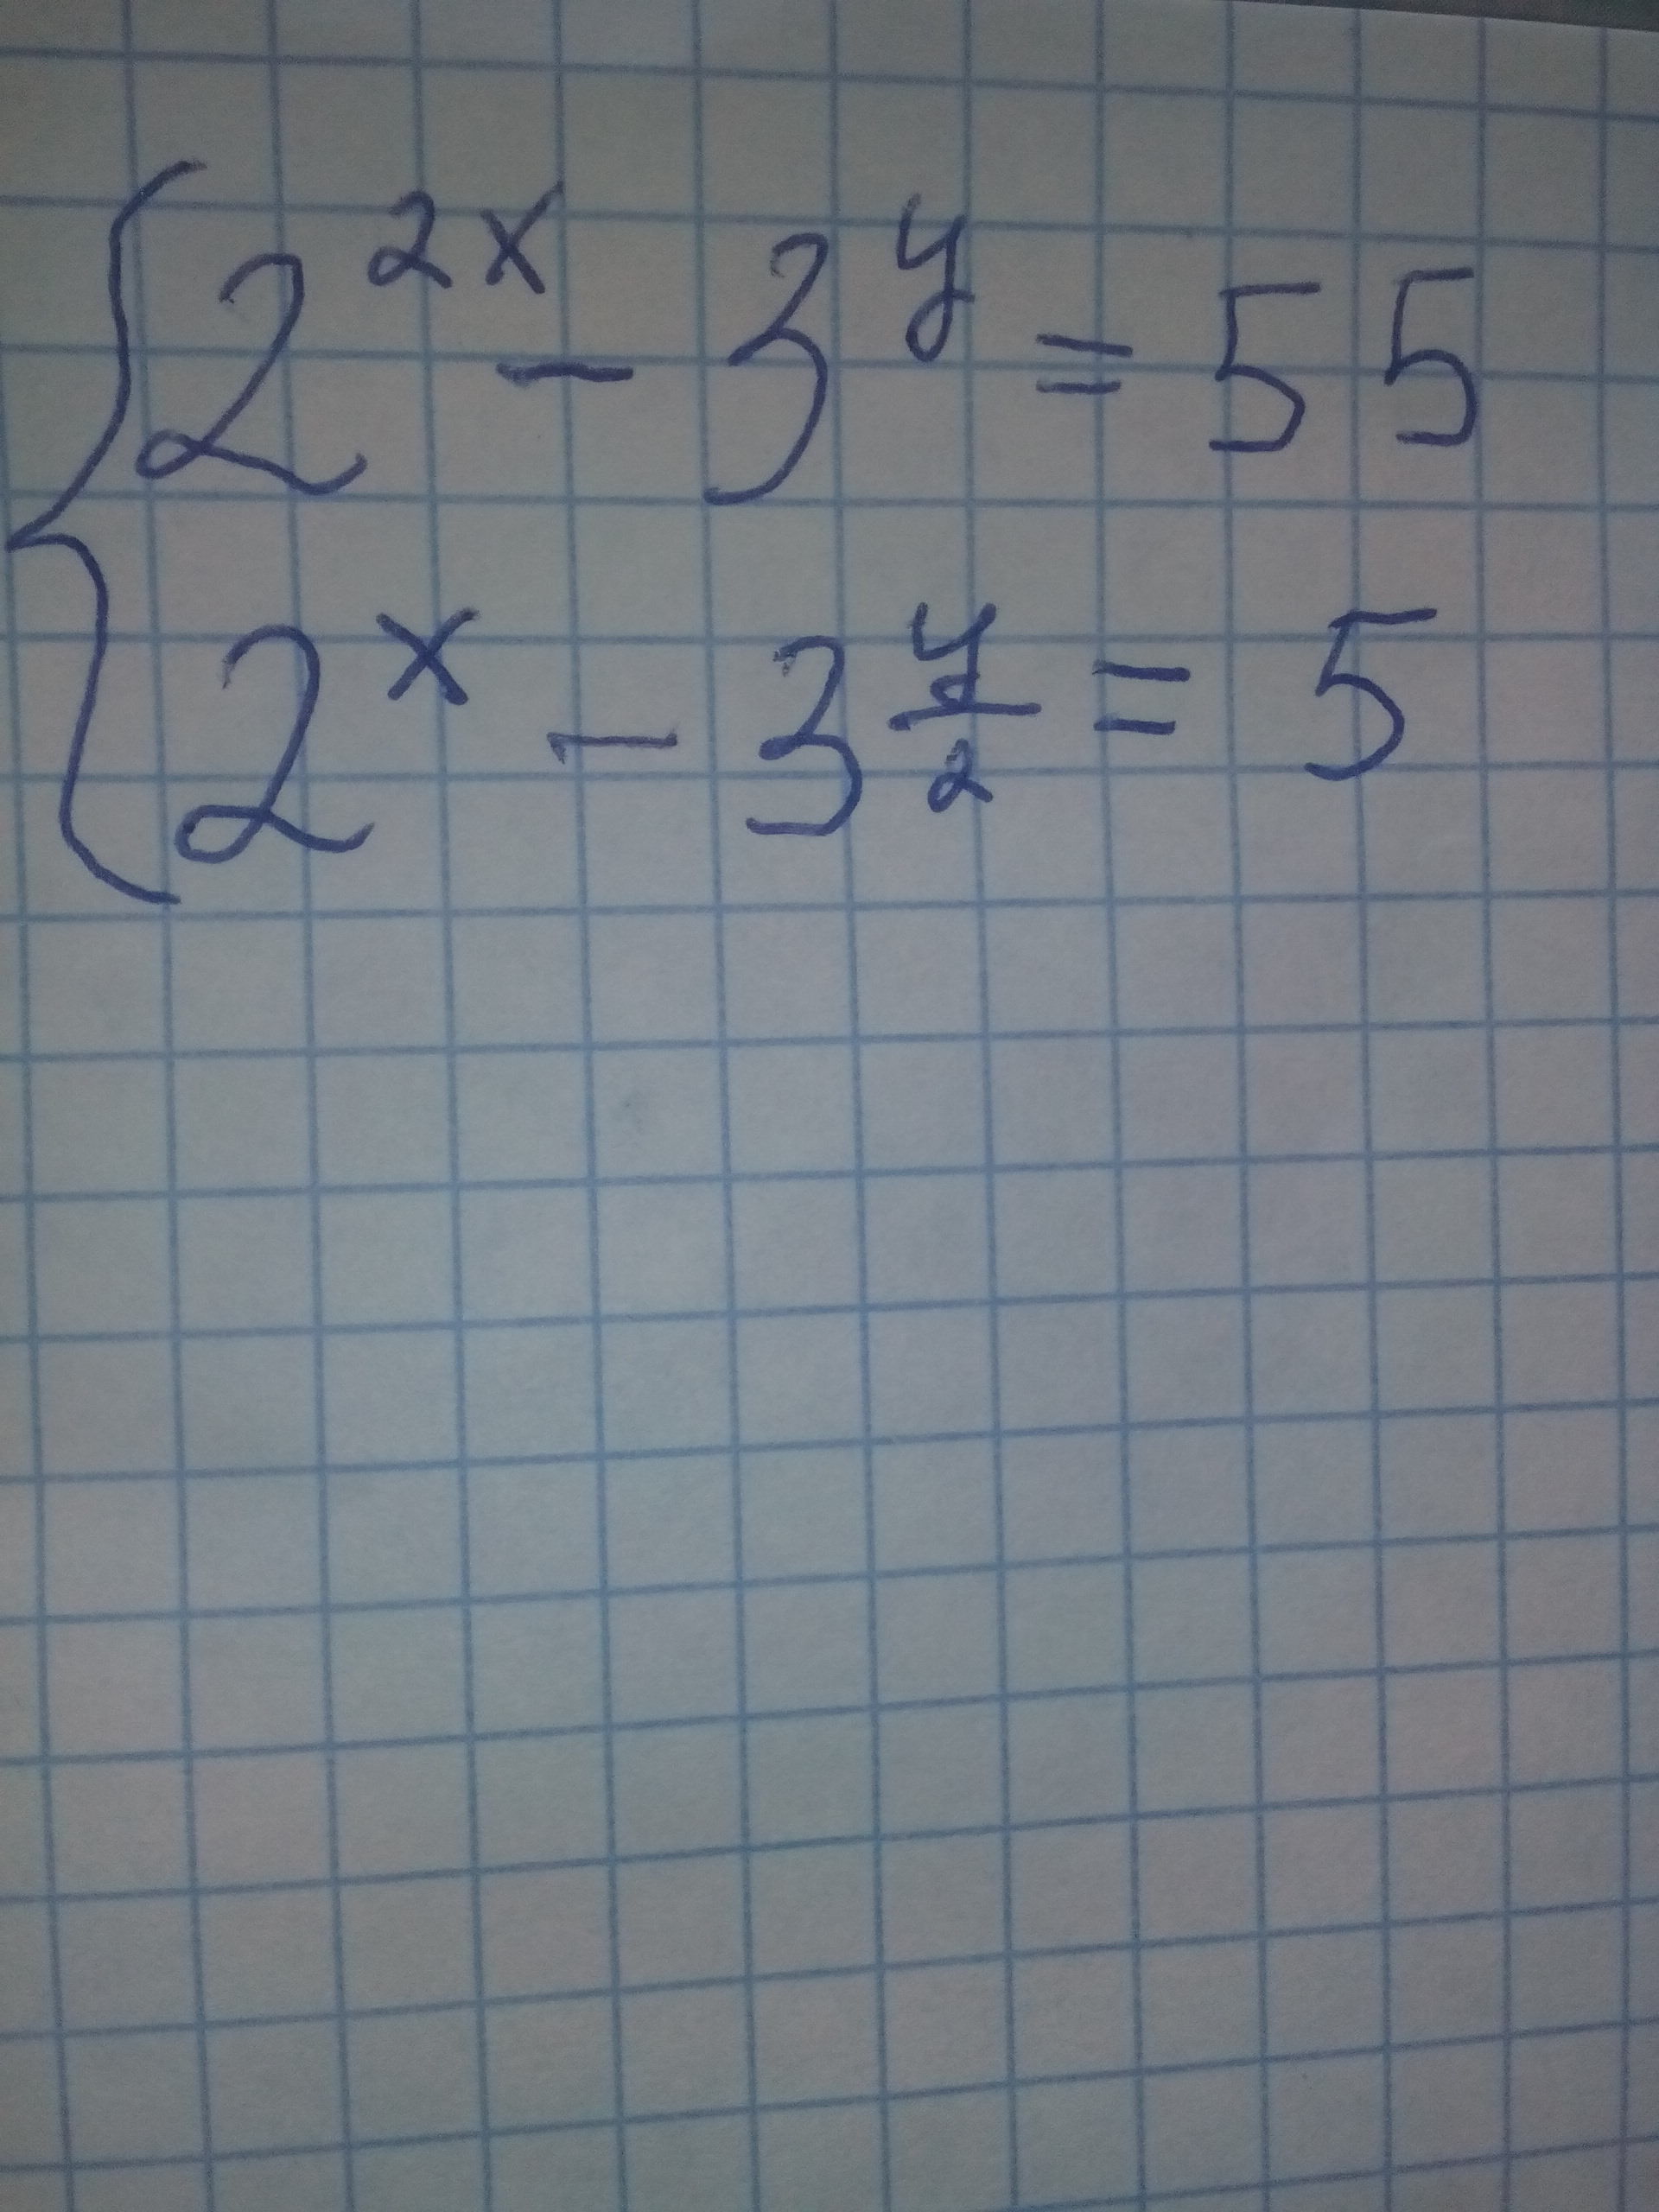 2^{2x} - 3^y = 55
2^x - 3^{\frac{y}{2}} = 5